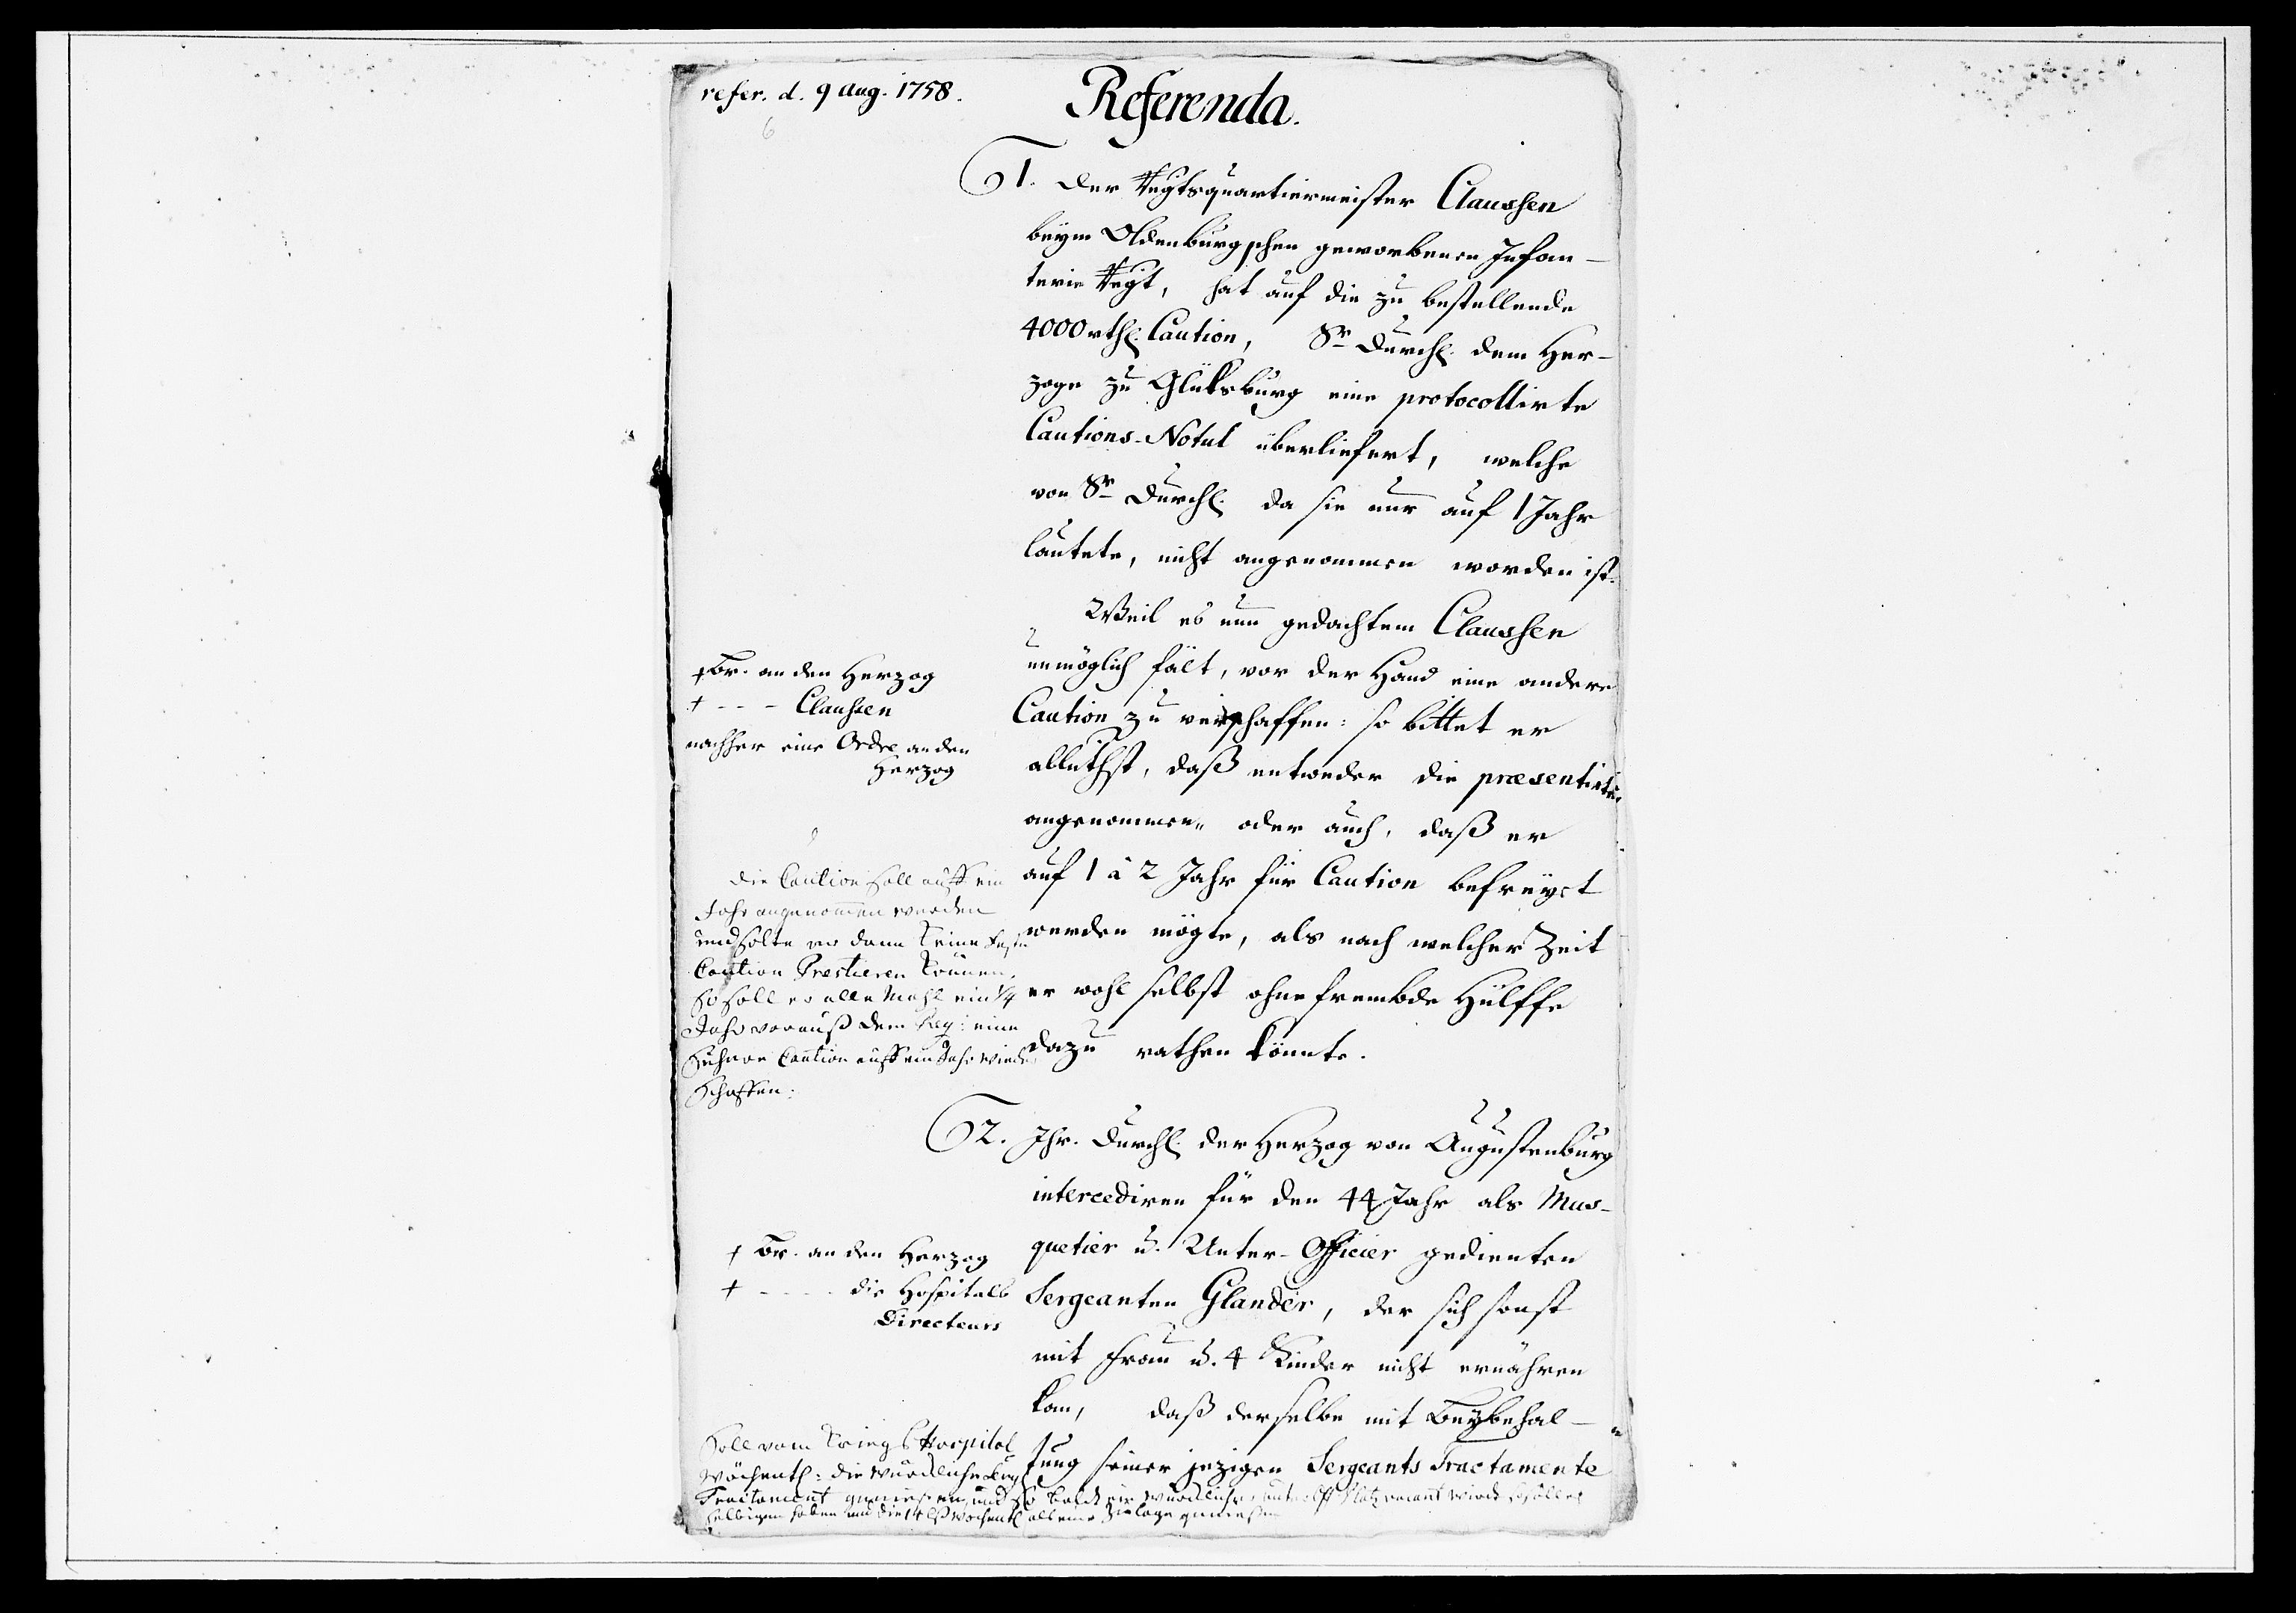 refer. d. 9 Aug. 1758.
Referenda.
6
1. Der Regtsquartiermeister Claussen
beym Oldenburgschen geworbenen Infan-
terie Regt, hat auf die zu bestellende
4000 rthl. Caution, Sr Durchl. dem Her-
zoge zu Glüksburg eine protocollirte
Cautions-Notul überliefert, welche
von Sr Durchl. da sie nur auf 1 Jahr
lautete, nicht angenommen worden ist.
Weil es nun gedachtem Claussen
unmöglich fält, vor der Hand eine andere
Caution zu verschaffen: so bittet er
allerthst, daß entweder die præsentirte
angenommen, oder auch, daß er
auf 1 à 2 Jahr für Caution befreyet
werden mögte, als nach welcher Zeit
er wohl selbst ohne frembde Hülffe
dazu rathen könnte.
† Br. an den Herzog
† - - - Claussen
nachher eine Ordre an den
Herzog
Die Caution soll auff ein
Jahr angenommen werden
und solte er dann keine
Caution Prestieren können,
so soll er alle Mahl ein 1/4
Jahr vorauß dem Reg: eine
sichere Caution auff ein Jahr wieder
schaffen:
2. Ihr. Durchl. der Herzog von Augustenburg
intercediren für den 44 Jahr als Mus-
quetier u. Unter-Officier gedienten
Sergeanten Glander, der sich sonst
mit Frau u. 4 Kinder nicht ernähren
kan, daß derselbe mit Beybehal-
tung seiner jezigen Sergeants Tractamente
† Br. an den Herzog
† - - - - die Hospitals
Directeurs
Soll vom Kriegs Hospital
wöchentl: die würckliche
Tractament geniessen, und so baldt ein würcklicher Platz vacant wird so soll er
selbigen haben und die wochentl als eine Zulage geniessen